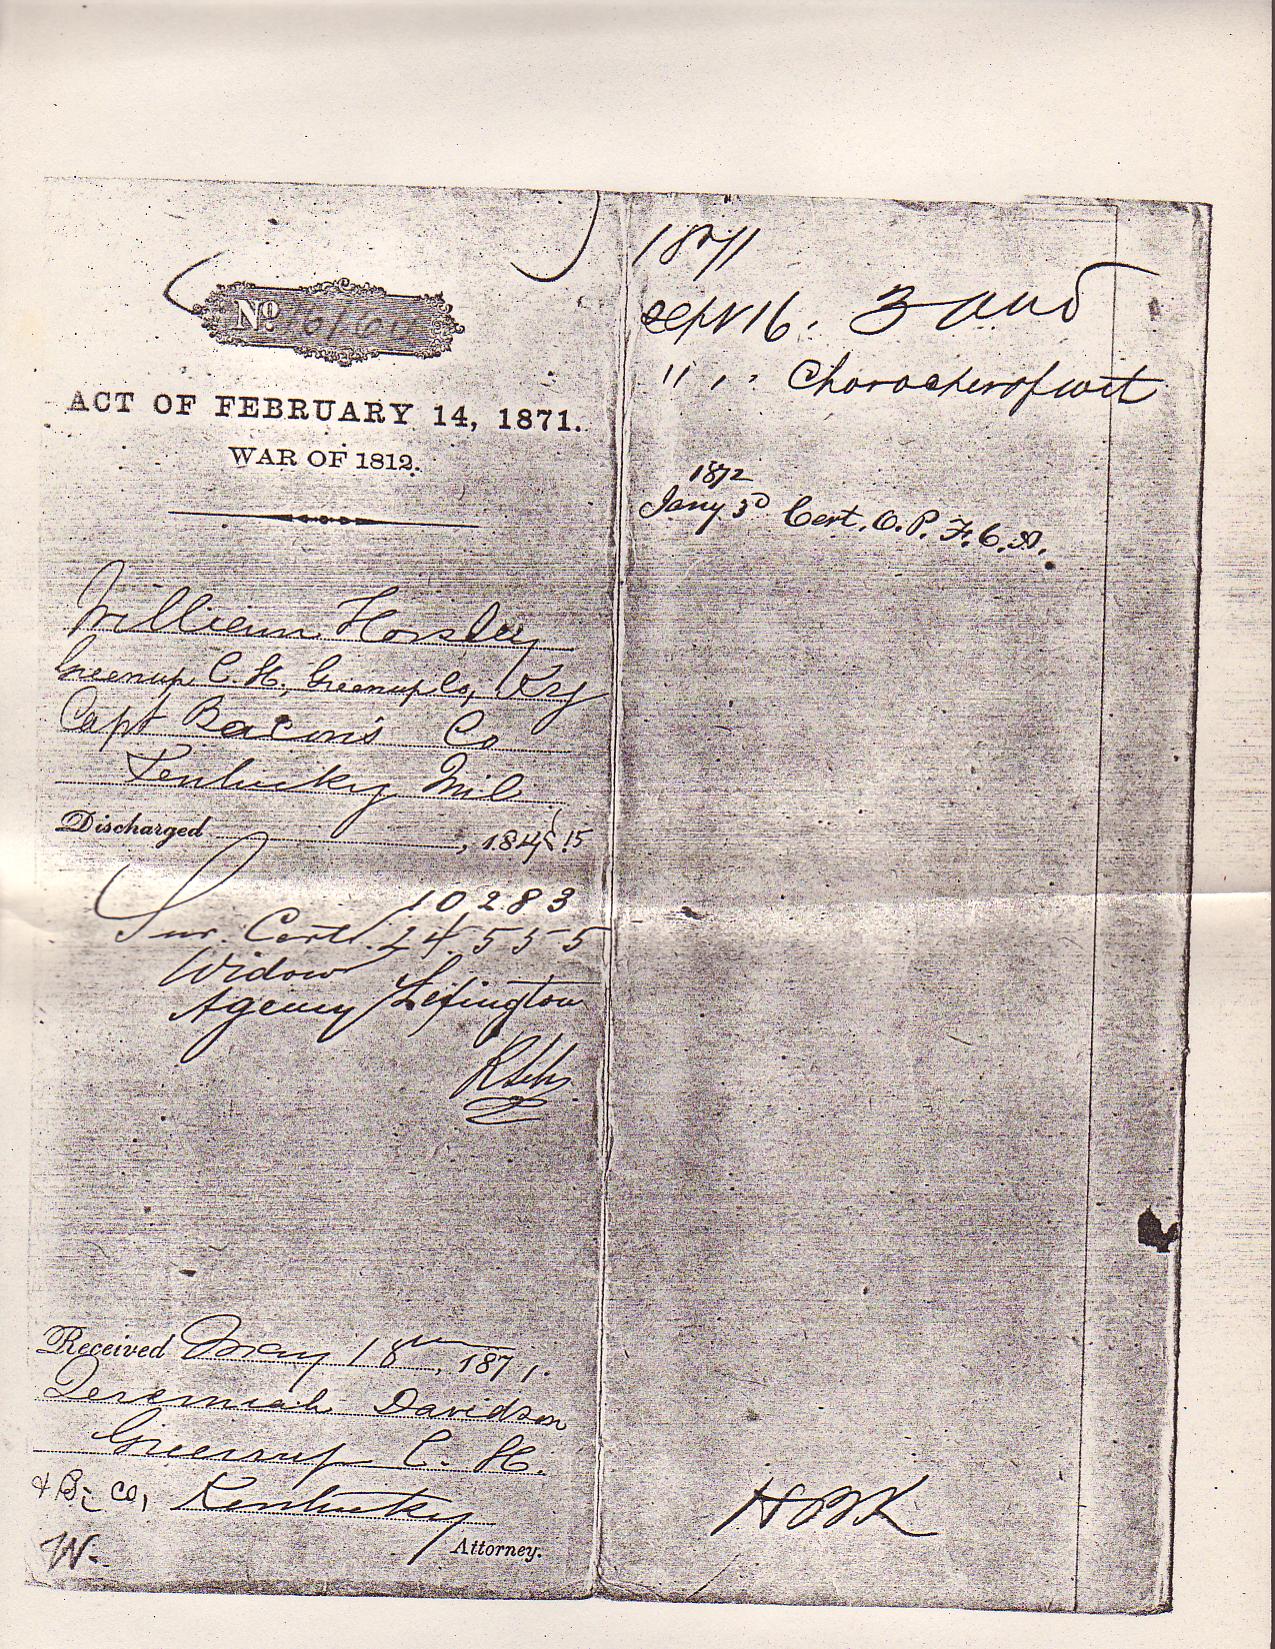 No
ACT OF FEBRUARY 14, 1871.
WAR OF 1812.
William Horsley
Greenup C. H., Greenup Co, Ky
Capt Bacon's Co
Kentucky Mil
Discharged , 1815
10283
Sur. Cert. 24555
Widow
Agency Lexington
Received May 18th, 1871.
Jeremiah Davidson
Greenup C. H.
& B; Co, Kentucky
Attorney.
W.
1871
Sept 16. 3 aud
" , , Character of wit
1872
Jany 3d Cert. O. P. F. C. H.